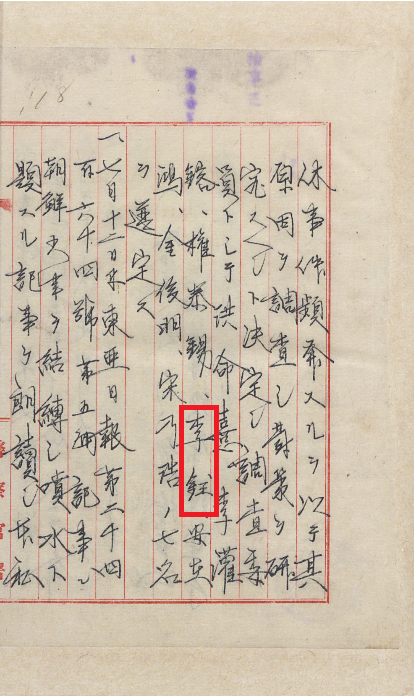 118
休事件頻発スルヲ以テ其
原因ヲ調査シ対策ヲ研
究スヘク決定シ調査委
員トシテ洪命憙、李灌
鎔、権泰錫、李鈺、安在
鴻、金俊淵、宋乃浩ノ七名
ヲ選定ス
一、七月十二日東亜日報第二千四
百六十四号第五面記事ハ
朝鮮火事ヲ結縛シ噴水ト
題スル記事ヲ朗読シ